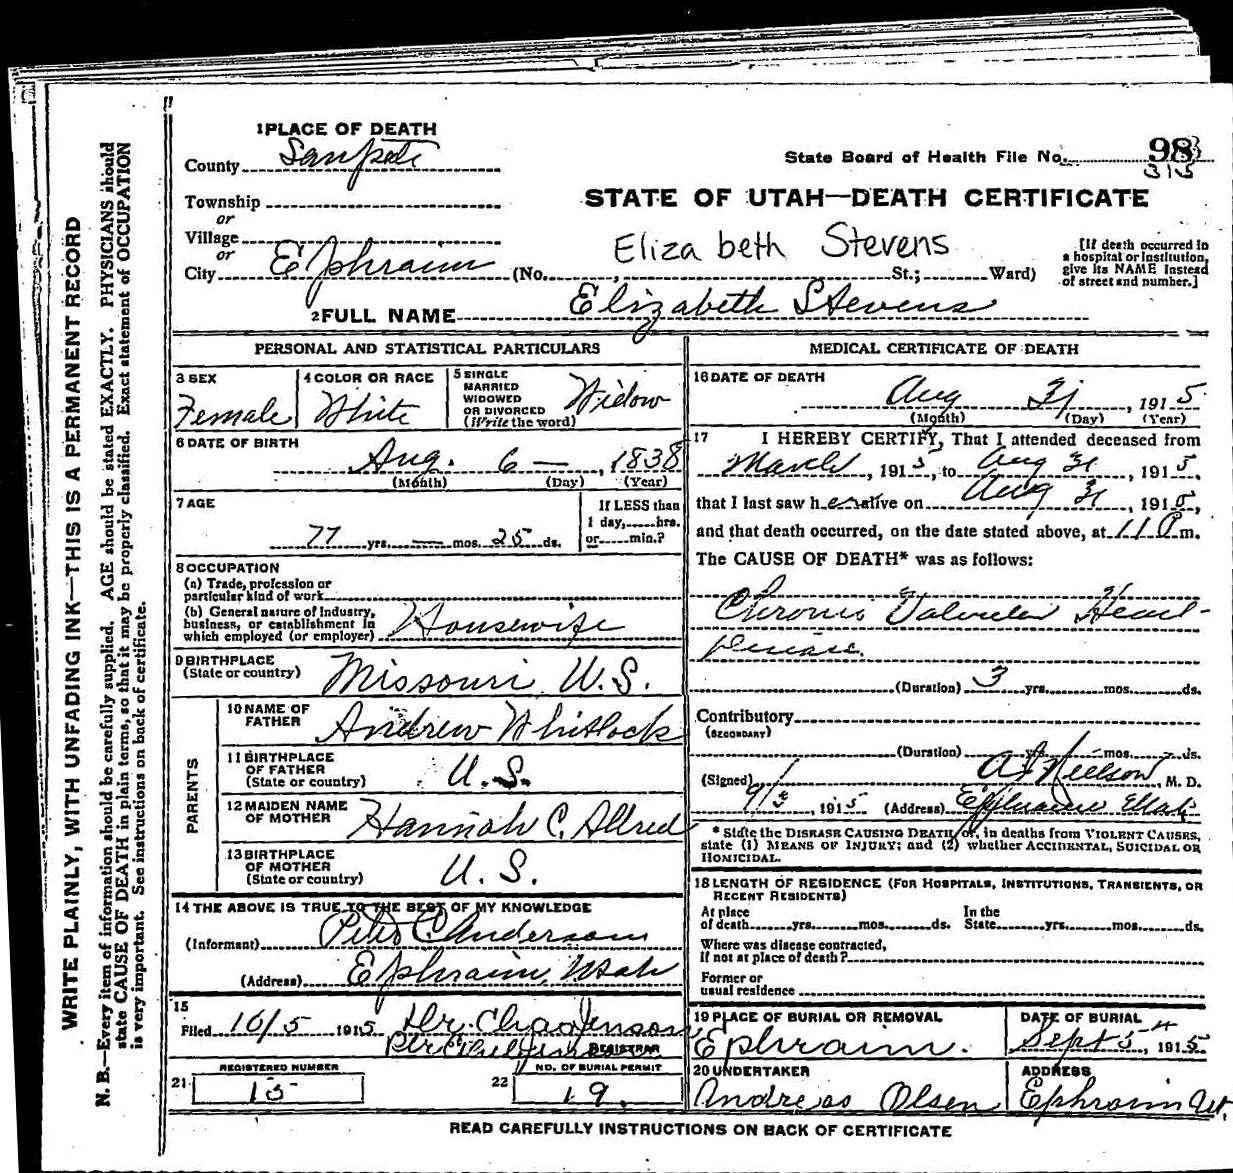 WRITE PLAINLY, WITH UNFADING INK—THIS IS A PERMANENT RECORD
N. B.—Every item of information should be carefully supplied. AGE should be stated EXACTLY. PHYSICIANS should
state CAUSE OF DEATH in plain terms, so that it may be properly classified. Exact statement of OCCUPATION
is very important. See instructions on back of certificate.
1 PLACE OF DEATH
County Sanpete
Township
or
Village
or
City Ephraim (No. , St.; Ward)
State Board of Health File No. 98
315
STATE OF UTAH—DEATH CERTIFICATE
Elizabeth Stevens
[If death occurred in
a hospital or institution,
give its NAME instead
of street and number.]
2 FULL NAME Elizabeth Stevens
PERSONAL AND STATISTICAL PARTICULARS
3 SEX
Female
4 COLOR OR RACE
White
5 SINGLE
MARRIED
WIDOWED
OR DIVORCED
(Write the word)
Widow
6 DATE OF BIRTH
Aug. 6 — , 1838
(Month) (Day) (Year)
7 AGE
77 yrs. — mos. 25 ds.
If LESS than
1 day, hrs.
or min.?
8 OCCUPATION
(a) Trade, profession or
particular kind of work
(b) General nature of industry,
business, or establishment in
which employed (or employer)
Housewife
9 BIRTHPLACE
(State or country)
Missouri U.S.
PARENTS
10 NAME OF
FATHER
Andrew Whitlock
11 BIRTHPLACE
OF FATHER
(State or country)
U.S.
12 MAIDEN NAME
OF MOTHER
Hannah C. Allred
13 BIRTHPLACE
OF MOTHER
(State or country)
U.S.
14 THE ABOVE IS TRUE TO THE BEST OF MY KNOWLEDGE
(Informant) Peter C. Anderson
(Address) Ephraim, Utah
15
Filed 10/5 1915
REGISTRAR
REGISTERED NUMBER
21 15
NO. OF BURIAL PERMIT
22 19.
MEDICAL CERTIFICATE OF DEATH
16 DATE OF DEATH
Aug 31, 1915
(Month) (Day) (Year)
17 I HEREBY CERTIFY, That I attended deceased from
March, 1915, to Aug 31, 1915,
that I last saw her alive on Aug 31, 1915,
and that death occurred, on the date stated above, at 11 P m.
The CAUSE OF DEATH* was as follows:
Chronic Valvular Heart
Disease.
(Duration) 3 yrs. mos. ds.
Contributory
(SECONDARY)
(Duration) yrs. mos. ds.
(Signed) Nielson, M. D.
9/3, 1915 (Address) Ephraim Utah
* State the DISEASE CAUSING DEATH, or, in deaths from VIOLENT CAUSES,
state (1) MEANS OF INJURY; and (2) whether ACCIDENTAL, SUICIDAL OR
HOMICIDAL.
18 LENGTH OF RESIDENCE (FOR HOSPITALS, INSTITUTIONS, TRANSIENTS, OR
RECENT RESIDENTS)
At place
of death yrs. mos. ds.
In the
State yrs. mos. ds.
Where was disease contracted,
if not at place of death?
Former or
usual residence
19 PLACE OF BURIAL OR REMOVAL
Ephraim.
DATE OF BURIAL
Sept 5, 1915
20 UNDERTAKER
Andreas Olsen
ADDRESS
Ephraim Ut.
READ CAREFULLY INSTRUCTIONS ON BACK OF CERTIFICATE